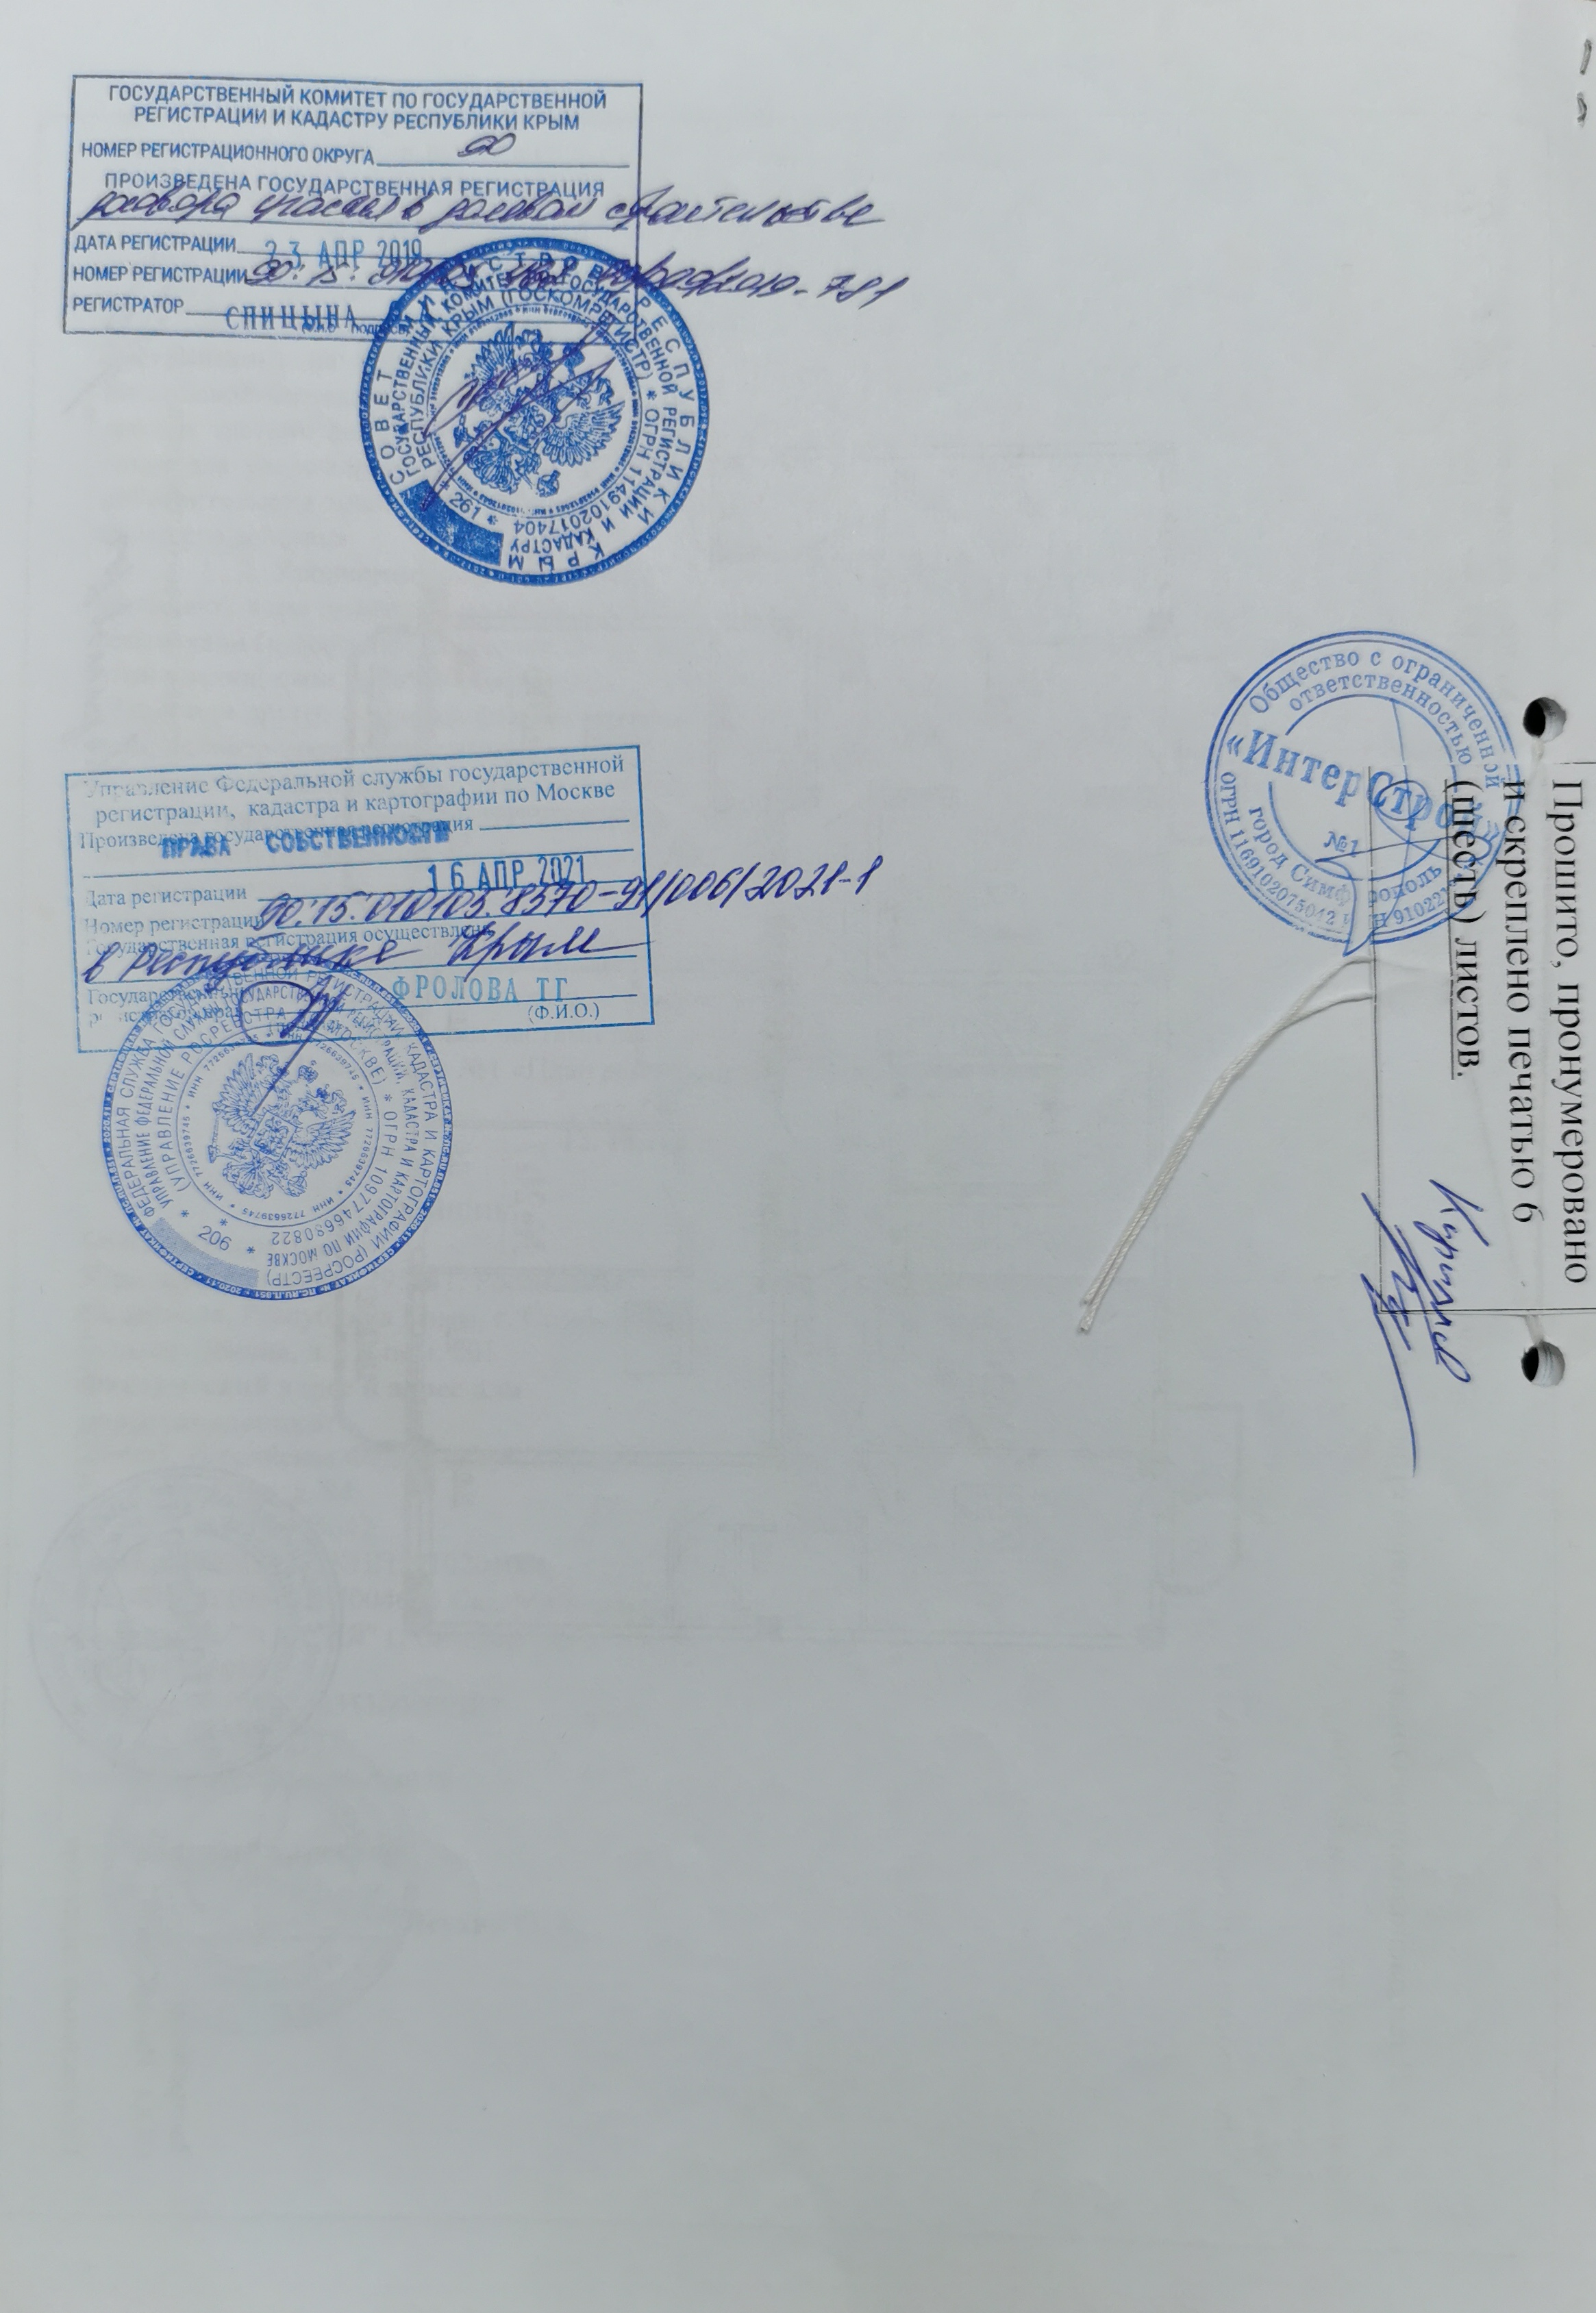 ГОСУДАРСТВЕННЫЙ КОМИТЕТ ПО ГОСУДАРСТВЕННОЙ
РЕГИСТРАЦИИ И КАДАСТРУ РЕСПУБЛИКИ КРЫМ
НОМЕР РЕГИСТРАЦИОННОГО ОКРУГА 90
ПРОИЗВЕДЕНА ГОСУДАРСТВЕННАЯ РЕГИСТРАЦИЯ
договора участия в долевом строительстве
ДАТА РЕГИСТРАЦИИ 23 АПР 2019
НОМЕР РЕГИСТРАЦИИ 90:15:
РЕГИСТРАТОР СПИЦЫНА
СОВЕТ МИНИСТРОВ РЕСПУБЛИКИ КРЫМ
ГОСУДАРСТВЕННЫЙ КОМИТЕТ ПО ГОСУДАРСТВЕННОЙ РЕГИСТРАЦИИ И КАДАСТРУ
РЕСПУБЛИКИ КРЫМ (ГОСКОМРЕГИСТР) * ОГРН 1149102017404
* 261 *
Управление Федеральной службы государственной
регистрации, кадастра и картографии по Москве
Произведена государственная регистрация
ПРАВА СОБСТВЕННОСТИ
Дата регистрации 16 АПР 2021
Номер регистрации 90:15:010103:8370-91/006/2021-1
Государственная регистрация осуществлена
в Республике Крым
Государственный
регистратор прав ФРОЛОВА ТГ
(Ф.И.О.)
ФЕДЕРАЛЬНАЯ СЛУЖБА ГОСУДАРСТВЕННОЙ РЕГИСТРАЦИИ, КАДАСТРА И КАРТОГРАФИИ (РОСРЕЕСТР)
УПРАВЛЕНИЕ ФЕДЕРАЛЬНОЙ СЛУЖБЫ ГОСУДАРСТВЕННОЙ РЕГИСТРАЦИИ, КАДАСТРА И КАРТОГРАФИИ ПО МОСКВЕ
(УПРАВЛЕНИЕ РОСРЕЕСТРА ПО МОСКВЕ) * ОГРН 1097746680822
ИНН 7726639745
* 206 *
Общество с ограниченной
ответственностью
«ИнтерСтрой»
№1
город Симферополь
ОГРН 1169102075042
Прошито, пронумеровано
и скреплено печатью 6
(шесть) листов.